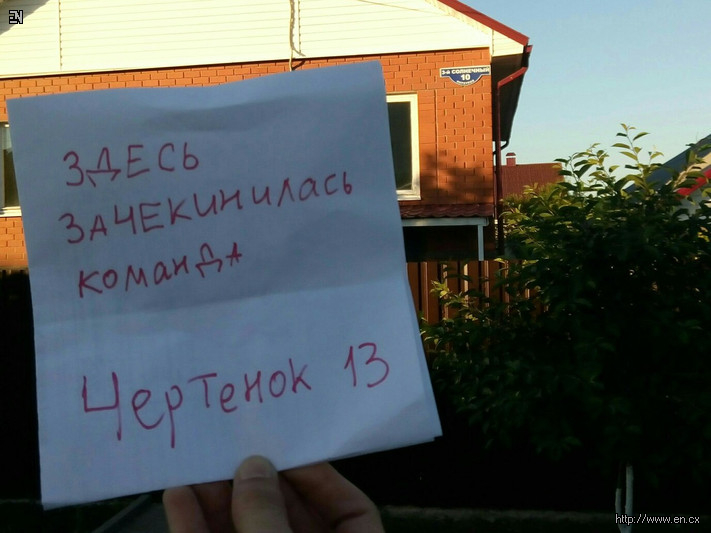 EN
3-й СОЛНЕЧНЫЙ
10
ЗДЕСЬ
ЗАЧЕКИНИЛАСЬ
КОМАНДА
Чертенок 13
http://www.en.cx